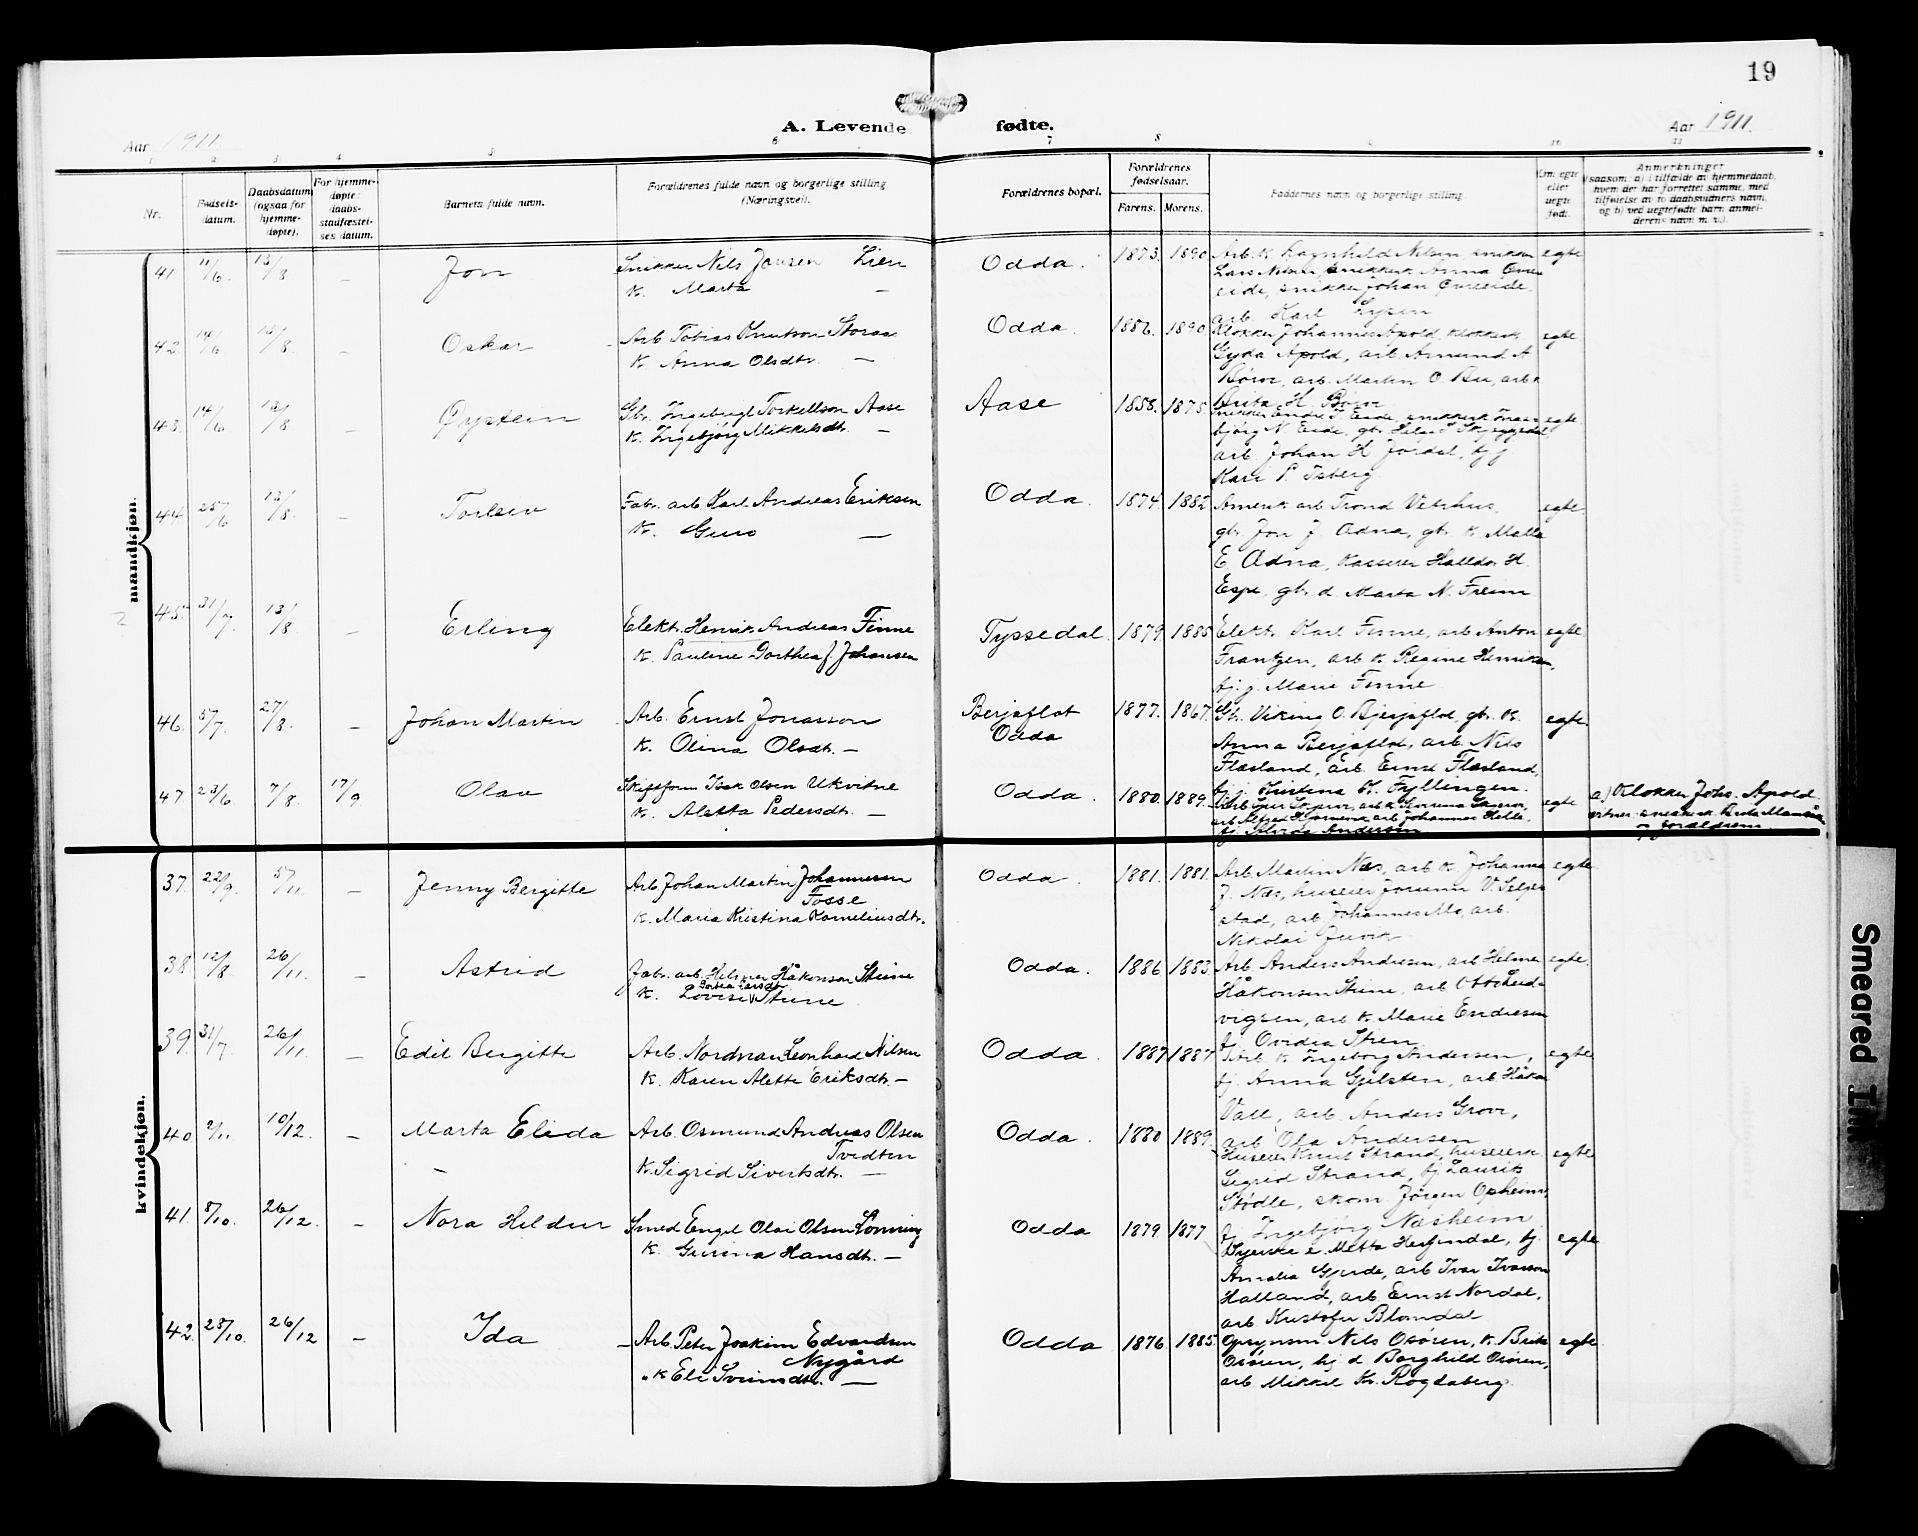 19
Aar 1911
A. Levende fødte.
Aar 1911
1 2 3 4 5 6 7 8 9 10 11
Nr.
Fødsels-
datum.
Daabsdatum
(ogsaa for
hjemme-
døpte).
For hjemme-
døpte:
daabs-
stadfæstel-
ses datum.
Barnets fulde navn.
Forældrenes fulde navn og borgerlige stilling
(Næringsvei).
Forældrenes bopæl.
Forældrenes
fødselsaar.
Farens. Morens.
Faddernes navn og borgerlige stilling
Om egte
eller
uegte
født.
Anmerkninger
saasom: a) i tilfælde av hjemmedaab,
hvem der har forrettet samme, med
tilføielse av to daabsvidners navn,
og b) ved uegtefødte barn anmel-
derens navn m. v.).
mandkjøn.
41. 11/6. 13/8 – Jon
Snikker Nils Jonsen Lien
K. Marta –
Odda. 1873. 1890
Arb. k. Ragnhild Nilsen, snikker
Lars Nilsen, snikkerk Anna Øvre
eide, snikker Johan Øvreeide.
arb Karl
egte
42. 14/6 13/8. – Oskar
Arb Tobias Knutson Storaa
K. Anna Olsdtr. –
Odda. 1886. 1890
Klokker Johannes Apold, klokkerk
Gyda Apold, arb Amund A
arb. Martin O. arb k
egte
43. 14/6 13/8 – Øystein
Gbr. Ingebrigt Torkellson Aase
K. Ingebjørg Mikkelsdtr. –
Aase 1858. 1875.
snikker Endre T. Eide, snikkerk Inge
bjørg N Eide, gbr. Helge Skjeggedal,
arb. Johan H Jordal, bj j
Kari P. Isberg
egte
44 25/6 13/8. – Torleiv
Fabr. arb Karl Andreas Eriksen
K. Guro –
Odda. 1874. 1882
Amerik arb Trond Vetrhus,
gbr Jon J Adna, gbr. k Malla
E. Adna, Kasserer Halldor H.
Espe, gbr. d. Marta N. Freim
egte.
45 31/7. 13/8 – Erling
Elektr. Henrik Andreas Finne
K. Pauline Dorthea f. Johansen
Tyssedal. 1879. 1885
Elektr. Karl Finne, arb Anton
Frantzen, arb k. Regine Henriksen,
bj. j. Marie Finne
egte.
46. 5/7. 27/8. – Johan Martin
Arb. Ernst Jonasson
K. Olina Olsdtr. –
Berjaflot
Odda
1877. 1867.
Gbr. Viking O. Bjerjaflot, gbr. k.
Anna Berjaflot, arb. Nils
Flæsland, arb. Ernst Flæsland,
bj j Kristina K. Fyllingen.
egte.
47 23/6 7/8. 17/9. Olav
Skipsform Isak Olsen Ukvitne
K. Aletta Pedersdtr. –
Odda. 1880. 1889
arb. Johannes Helle,
Andersen
egte
a) Klokker Johs. Apold
kvindekjøn.
37. 22/9. 5/11. – Jenny Bergitte
Arb Johan Martin Johannesen
Fosse
K. Maria Kristina Korneliusdtr.
Odda. 1881. 1881.
Arb Martin Næs, arb k. Johanna
J. Næs, huseier Jorunn V. Seljes
stad, arb Johannes Mo, arb.
Nikolai Juvik
egte
38 12/8 26/11. – Astrid
Fabr. arb Helmer Håkonson Steine
Dortea Larsdtr
K. Lovise Steine
Odda. 1886 1883.
Arb Anders Andresen, arb Helmer
Håkonsen Steine, arb Otto Lud-
vigsen, arb k Marie Endresen
bj. Ovidia Stren
egte.
39. 31/7. 26/11. – Edil Bergitte
Arb. Nordman Leonhard Nilsen
K. Karen Alette Eriksdtr. –
Odda. 1887 1887
Arb k Ingeborg Andersen,
bj. Anna Gjilsten, arb Håkon
Vall, arb. Anders Grove,
arb Ola Andersen
egte
40. 2/11. 10/12. – Marta Elida
Arb. Osmund Andreas Olsen
Tvedten
K. Sigrid Sivertsdtr. –
Odda. 1880 1889
Huseier Knut Strand, huseierk
Sigrid Strand, bj Laurits
Stødle, skom. Jørgen Opheim,
bj Ingebjørg Næsheim
egte
41. 8/10. 26/12. – Nora Hildur
Smed Engel Olai Olsen Lønning
K. Gurina Hansdtr. –
Odda 1879 1877
Syerske e. Metta Herfindal, bj.
Amalia Gjerde, arb Ivar Ivarson
Halland, arb Ernst Nordal,
arb Kristofer Blomdal
egte
42. 28/10. 26/12 – Ida
– Arb. Peter Joakim Edvardsen
Nygård
" K Eli Sveinsdtr. –
Odda 1876 1885.
Opsynsm Nils Osøren, k. Brita
Osøren, bj d. Borghild Osøren,
arb Mikkel Kr. Rogdaberg.
egte
Smeared Ink